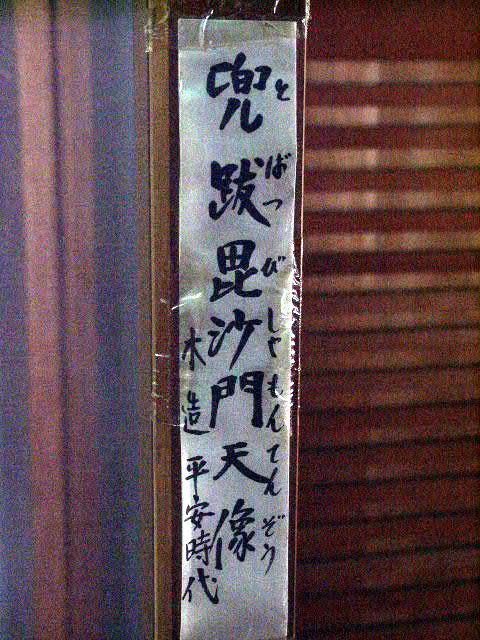 とばつびしゃもんてんぞう
兜跋毘沙門天像
木造 平安時代